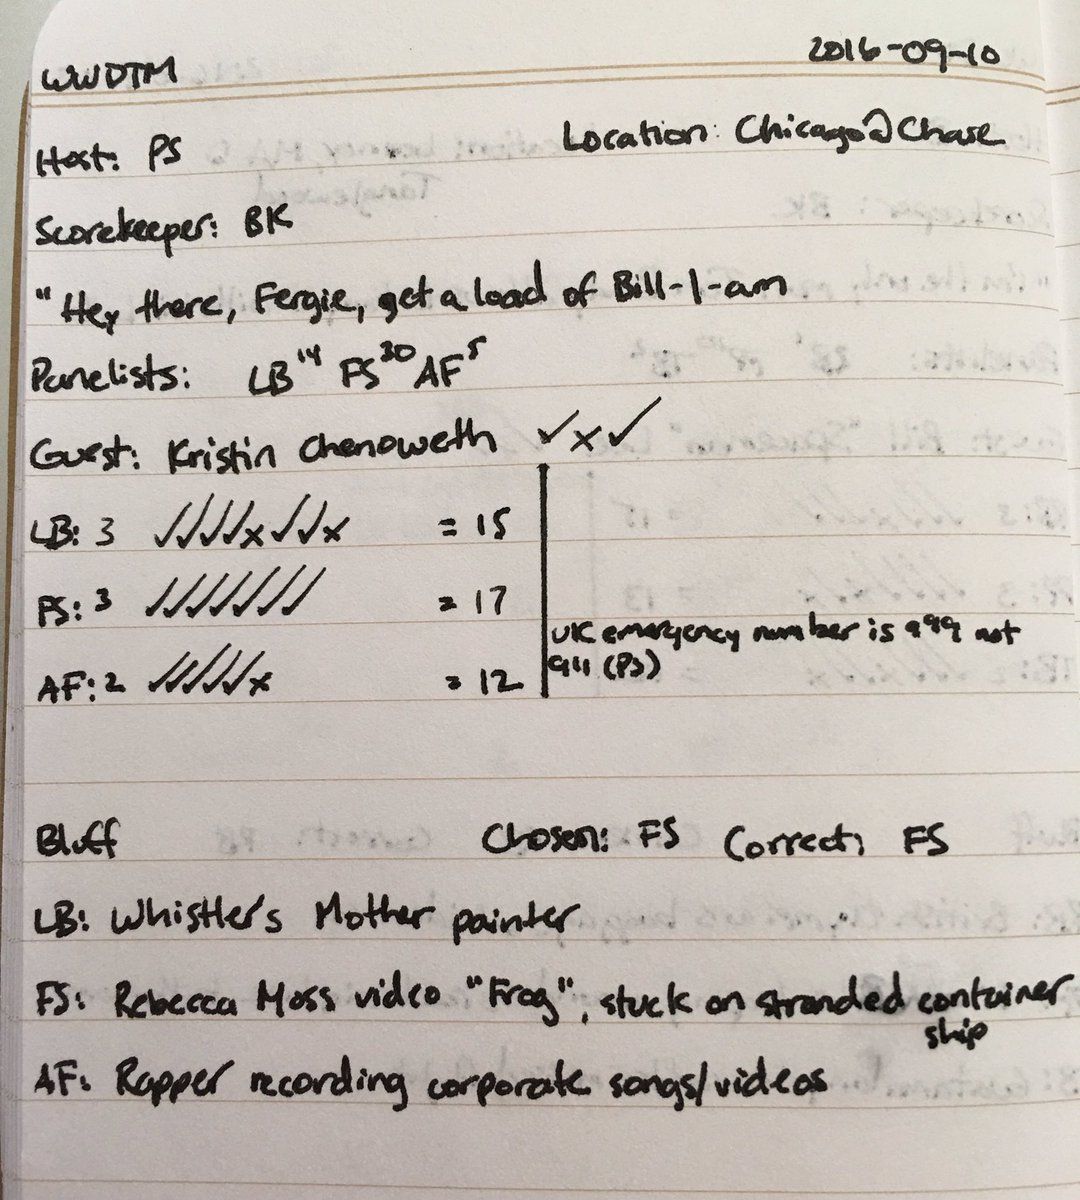 WWDTM 2016-09-10
Host: PS Location: Chicago@Chase
Scorekeeper: BK
"Hey there, Fergie, get a load of Bill-I-am
Panelists: LB 14 FS 30 AF 5
Guest: Kristin Chenoweth ✓x✓
LB: 3 ✓✓✓✓x✓✓x = 15
FS: 3 ✓✓✓✓✓✓✓ = 17
UK emergency number is 999 not
911 (PS)
AF: 2 ✓✓✓✓✓x = 12
Bluff Chosen: FS Correct: FS
LB: Whistler's Mother painter
FS: Rebecca Moss video "Frog", stuck on stranded container
ship
AF: Rapper recording corporate songs/videos